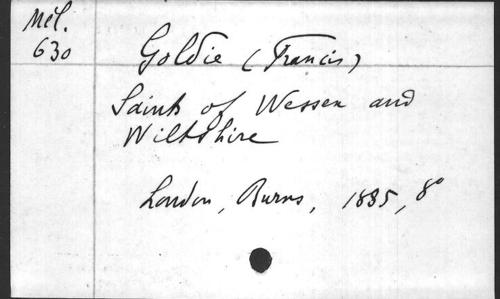 Mél.
630
Goldie (Francis)
Saints of Wessex and
Wiltshire
London, Burns, 1885, 8°